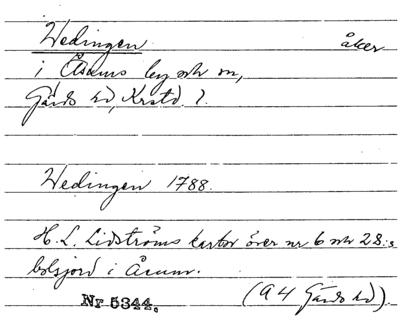 Wedingen åker
i Åsums by och sn,
Gärds hd, Krstd l.
Wedingen 1788.
H. L. Lidströms kartor över nr 6 och 28:s
bolsjord i Åsum.
Nr 5344. (A 4 Gärds hd).